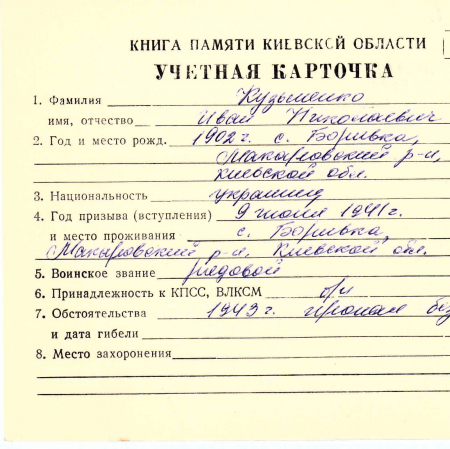 КНИГА ПАМЯТИ КИЕВСКОЙ ОБЛАСТИ
УЧЕТНАЯ КАРТОЧКА
1. Фамилия Кузьменко
имя, отчество Иван Николаевич
2. Год и место рожд. 1902 г. с. Боривка,
Макаровский р-н,
Киевской обл.
3. Национальность украинец
4. Год призыва (вступления) 9 июля 1941 г.
и место проживания с. Боривка,
Макаровский р-н. Киевской обл.
5. Воинское звание рядовой
6. Принадлежность к КПСС, ВЛКСМ б/п
7. Обстоятельства 1943 г. пропал без
и дата гибели
8. Место захоронения